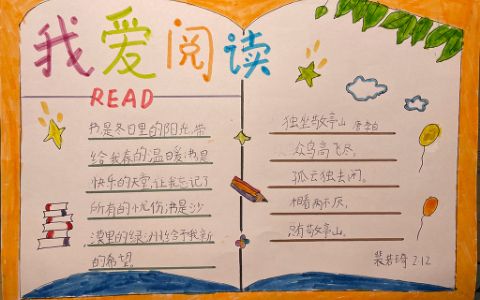 我爱阅读
READ
书是冬日里的阳光,带
给我春的温暖;书是
快乐的天堂,让我忘记了
所有的忧伤;书是沙
漠里的绿洲,给予我新
的希望。
独坐敬亭山 唐李白
众鸟高飞尽,
孤云独去闲。
相看两不厌,
只有敬亭山。
裴若琦 2.12